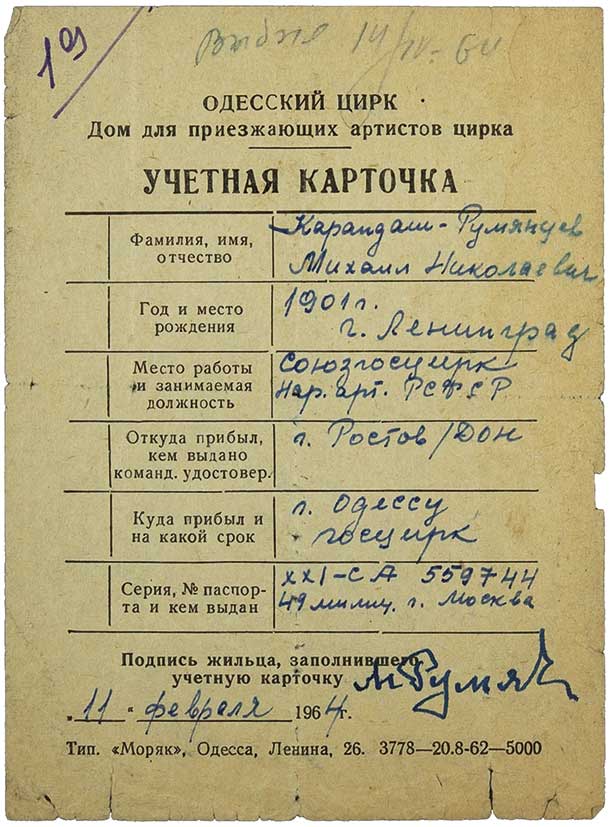 19
Выбыл 14/IV-64
ОДЕССКИЙ ЦИРК
Дом для приезжающих артистов цирка
УЧЕТНАЯ КАРТОЧКА
Фамилия, имя, отчество
Карандаш-Румянцев
Михаил Николаевич
Год и место рождения
1901 г.
г. Ленинград
Место работы и занимаемая должность
Союзгосцирк
Нар. арт. РСФСР
Откуда прибыл, кем выдано команд. удостовер.
г. Ростов/Дон
Куда прибыл и на какой срок
г. Одессу
госцирк
Серия, № паспорта и кем выдан
XXI-СА 559744
49 милиц. г. Москва
Подпись жильца, заполнившего
учетную карточку М Румян
„11" февраля 1964 г.
Тип. «Моряк», Одесса, Ленина, 26. 3778—20.8-62—5000